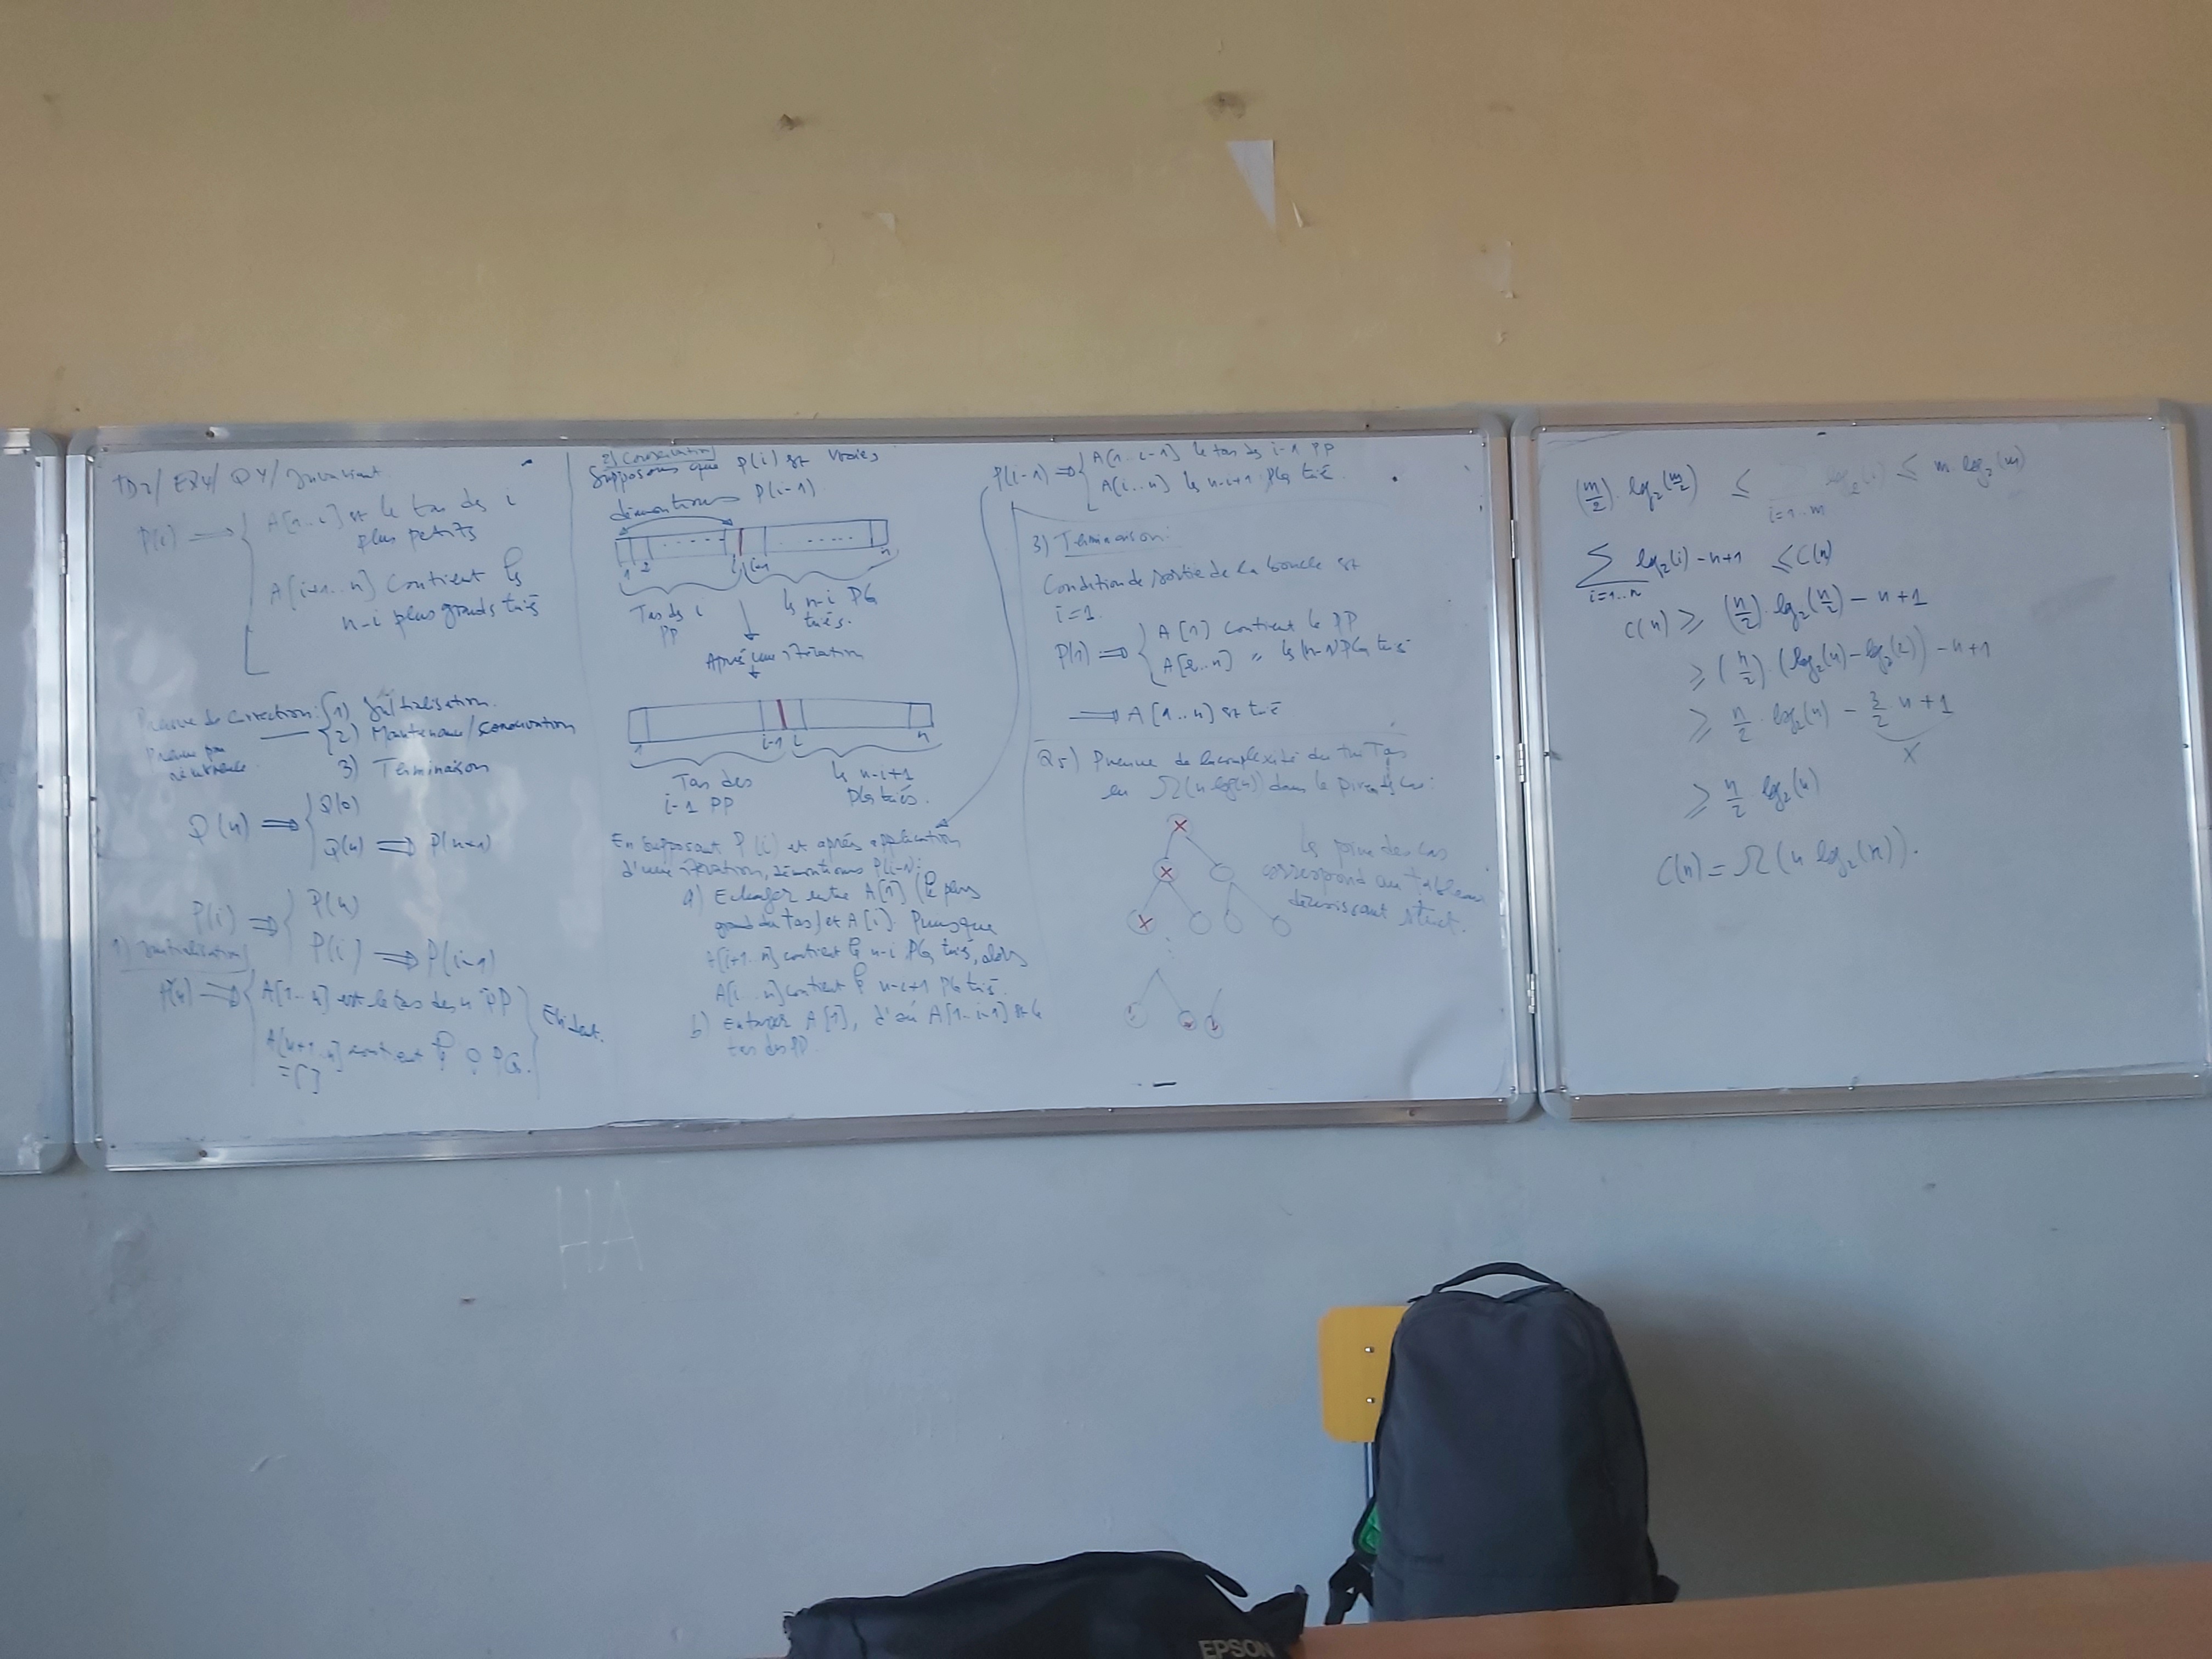 TD2/ EX4/ Q4/ Invariant
P(i) ⟹ { A[1..i] est le tas des i
plus petits
A[i+1..n] Contient les
n-i plus grands triés
Preuve de Correction: { 1) Initialisation.
Preuve par récurrence.
2) Maintenance/Conservation
3) Terminaison
Q(n) ⟹ { Q(0)
Q(n) ⟹ P(n+1)
P(i) ⟹ { P(n)
P(i) ⟹ P(i-1)
1) Initialisation
P(n) ⟹ { A[1..n] est le tas des n PP
A[n+1..n] contient les 0 PG.
=[]
} Evident.
2) Conservation
Supposons que P(i) est vraie
démontrons P(i-1)
1 2 ..... i i+1 ..... n
Tas des i
PP
les n-i PG
triés.
Après une itération
1 i-1 i n
Tas des
i-1 PP
les n-i+1
PG triés.
En supposant P(i) et après application
d'une itération, démontrons P(i-1):
a) Echanger entre A[1] (le plus
grand du tas) et A[i]. Puisque
A[i+1..n] contient les n-i PG triés, alors
A[i...n] contient les n-i+1 PG triés.
b) Entasser A[1], d'où A[1..i-1] est le
tas des PP.
P(i-1) ⟹ { A[1..i-1] le tas des i-1 PP
A[i...n] les n-i+1 PG trié.
3) Terminaison:
Condition de sortie de la boucle est
i=1.
P(1) ⟹ { A[1] contient le PP
A[2..n] " les (n-1) PG trié
⟹ A[1..n] est trié
Q5) Preuve de la complexité du tri Tas
en Ω(n log(n)) dans le pire des cas:
Le pire des cas
correspond au tableau
décroissant strict.
(m/2). log₂(m/2) ≤ log₂(i) ≤ m. log₂(m)
i=1..m
∑ log₂(i) - n+1 ≤ C(n)
i=1..n
C(n) ≥ (n/2). log₂(n/2) - n+1
≥ (n/2). (log₂(n) - log₂(2)) - n+1
≥ n/2 . log₂(n) - 3/2 . n+1
X
≥ n/2 . log₂(n)
C(n) = Ω(n log₂(n)).
HA
EPSON